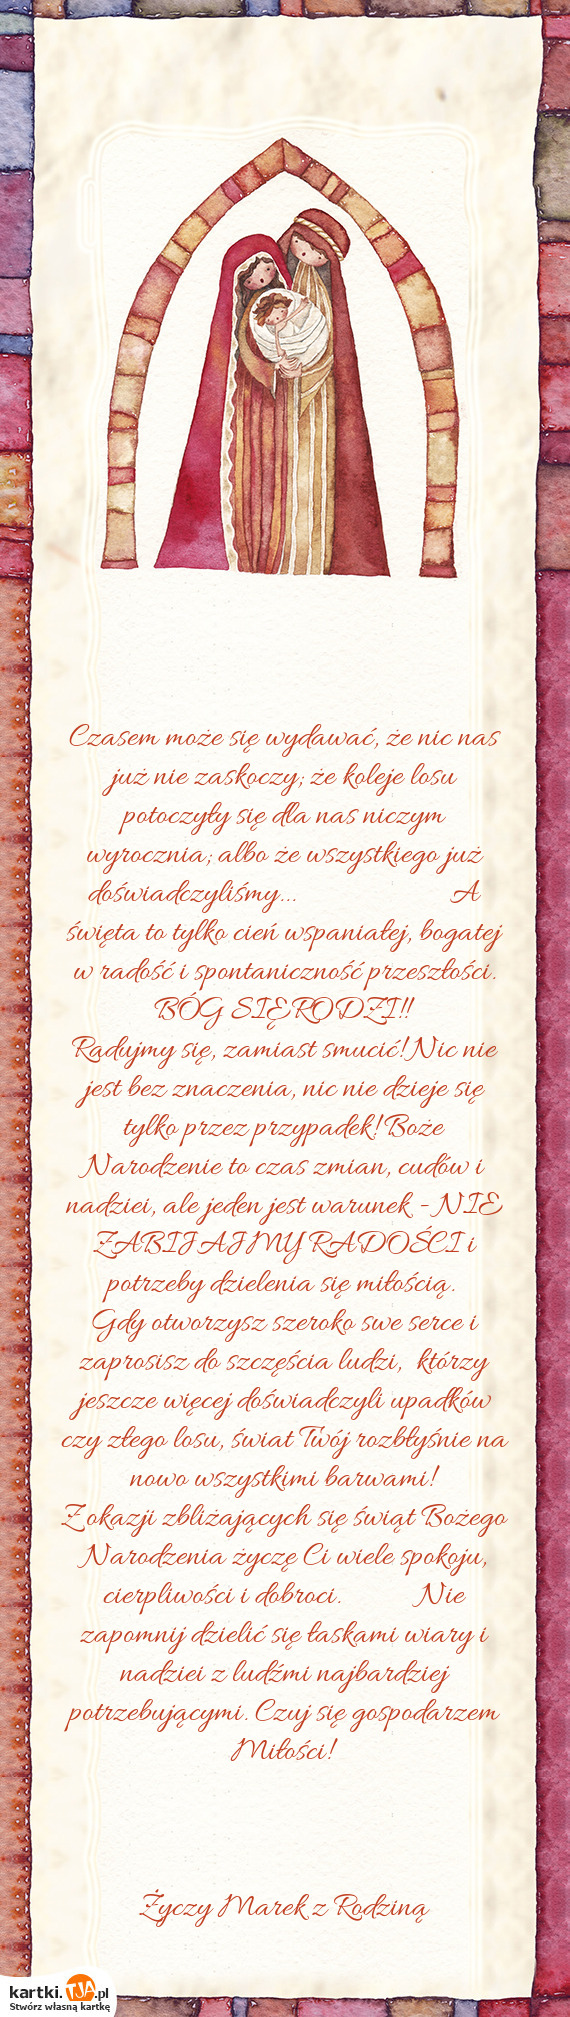 Czasem może się wydawać, że nic nas
już nie zaskoczy; że koleje losu
potoczyły się dla nas niczym
wyrocznia; albo że wszystkiego już
doświadczyliśmy... A
święta to tylko cień wspaniałej, bogatej
w radość i spontaniczność przeszłości.
BÓG SIĘ RODZI!!
Radujmy się, zamiast smucić! Nic nie
jest bez znaczenia, nic nie dzieje się
tylko przez przypadek! Boże
Narodzenie to czas zmian, cudów i
nadziei, ale jeden jest warunek - NIE
ZABIJAJMY RADOŚCI i
potrzeby dzielenia się miłością.
Gdy otworzysz szeroko swe serce i
zaprosisz do szczęścia ludzi, którzy
jeszcze więcej doświadczyli upadków
czy złego losu, świat Twój rozbłyśnie na
nowo wszystkimi barwami!
Z okazji zbliżających się świąt Bożego
Narodzenia życzę Ci wiele spokoju,
cierpliwości i dobroci. Nie
zapomnij dzielić się łaskami wiary i
nadziei z ludźmi najbardziej
potrzebującymi. Czuj się gospodarzem
Miłości!
Życzy Marek z Rodziną
kartki.TJA.pl
Stwórz własną kartkę